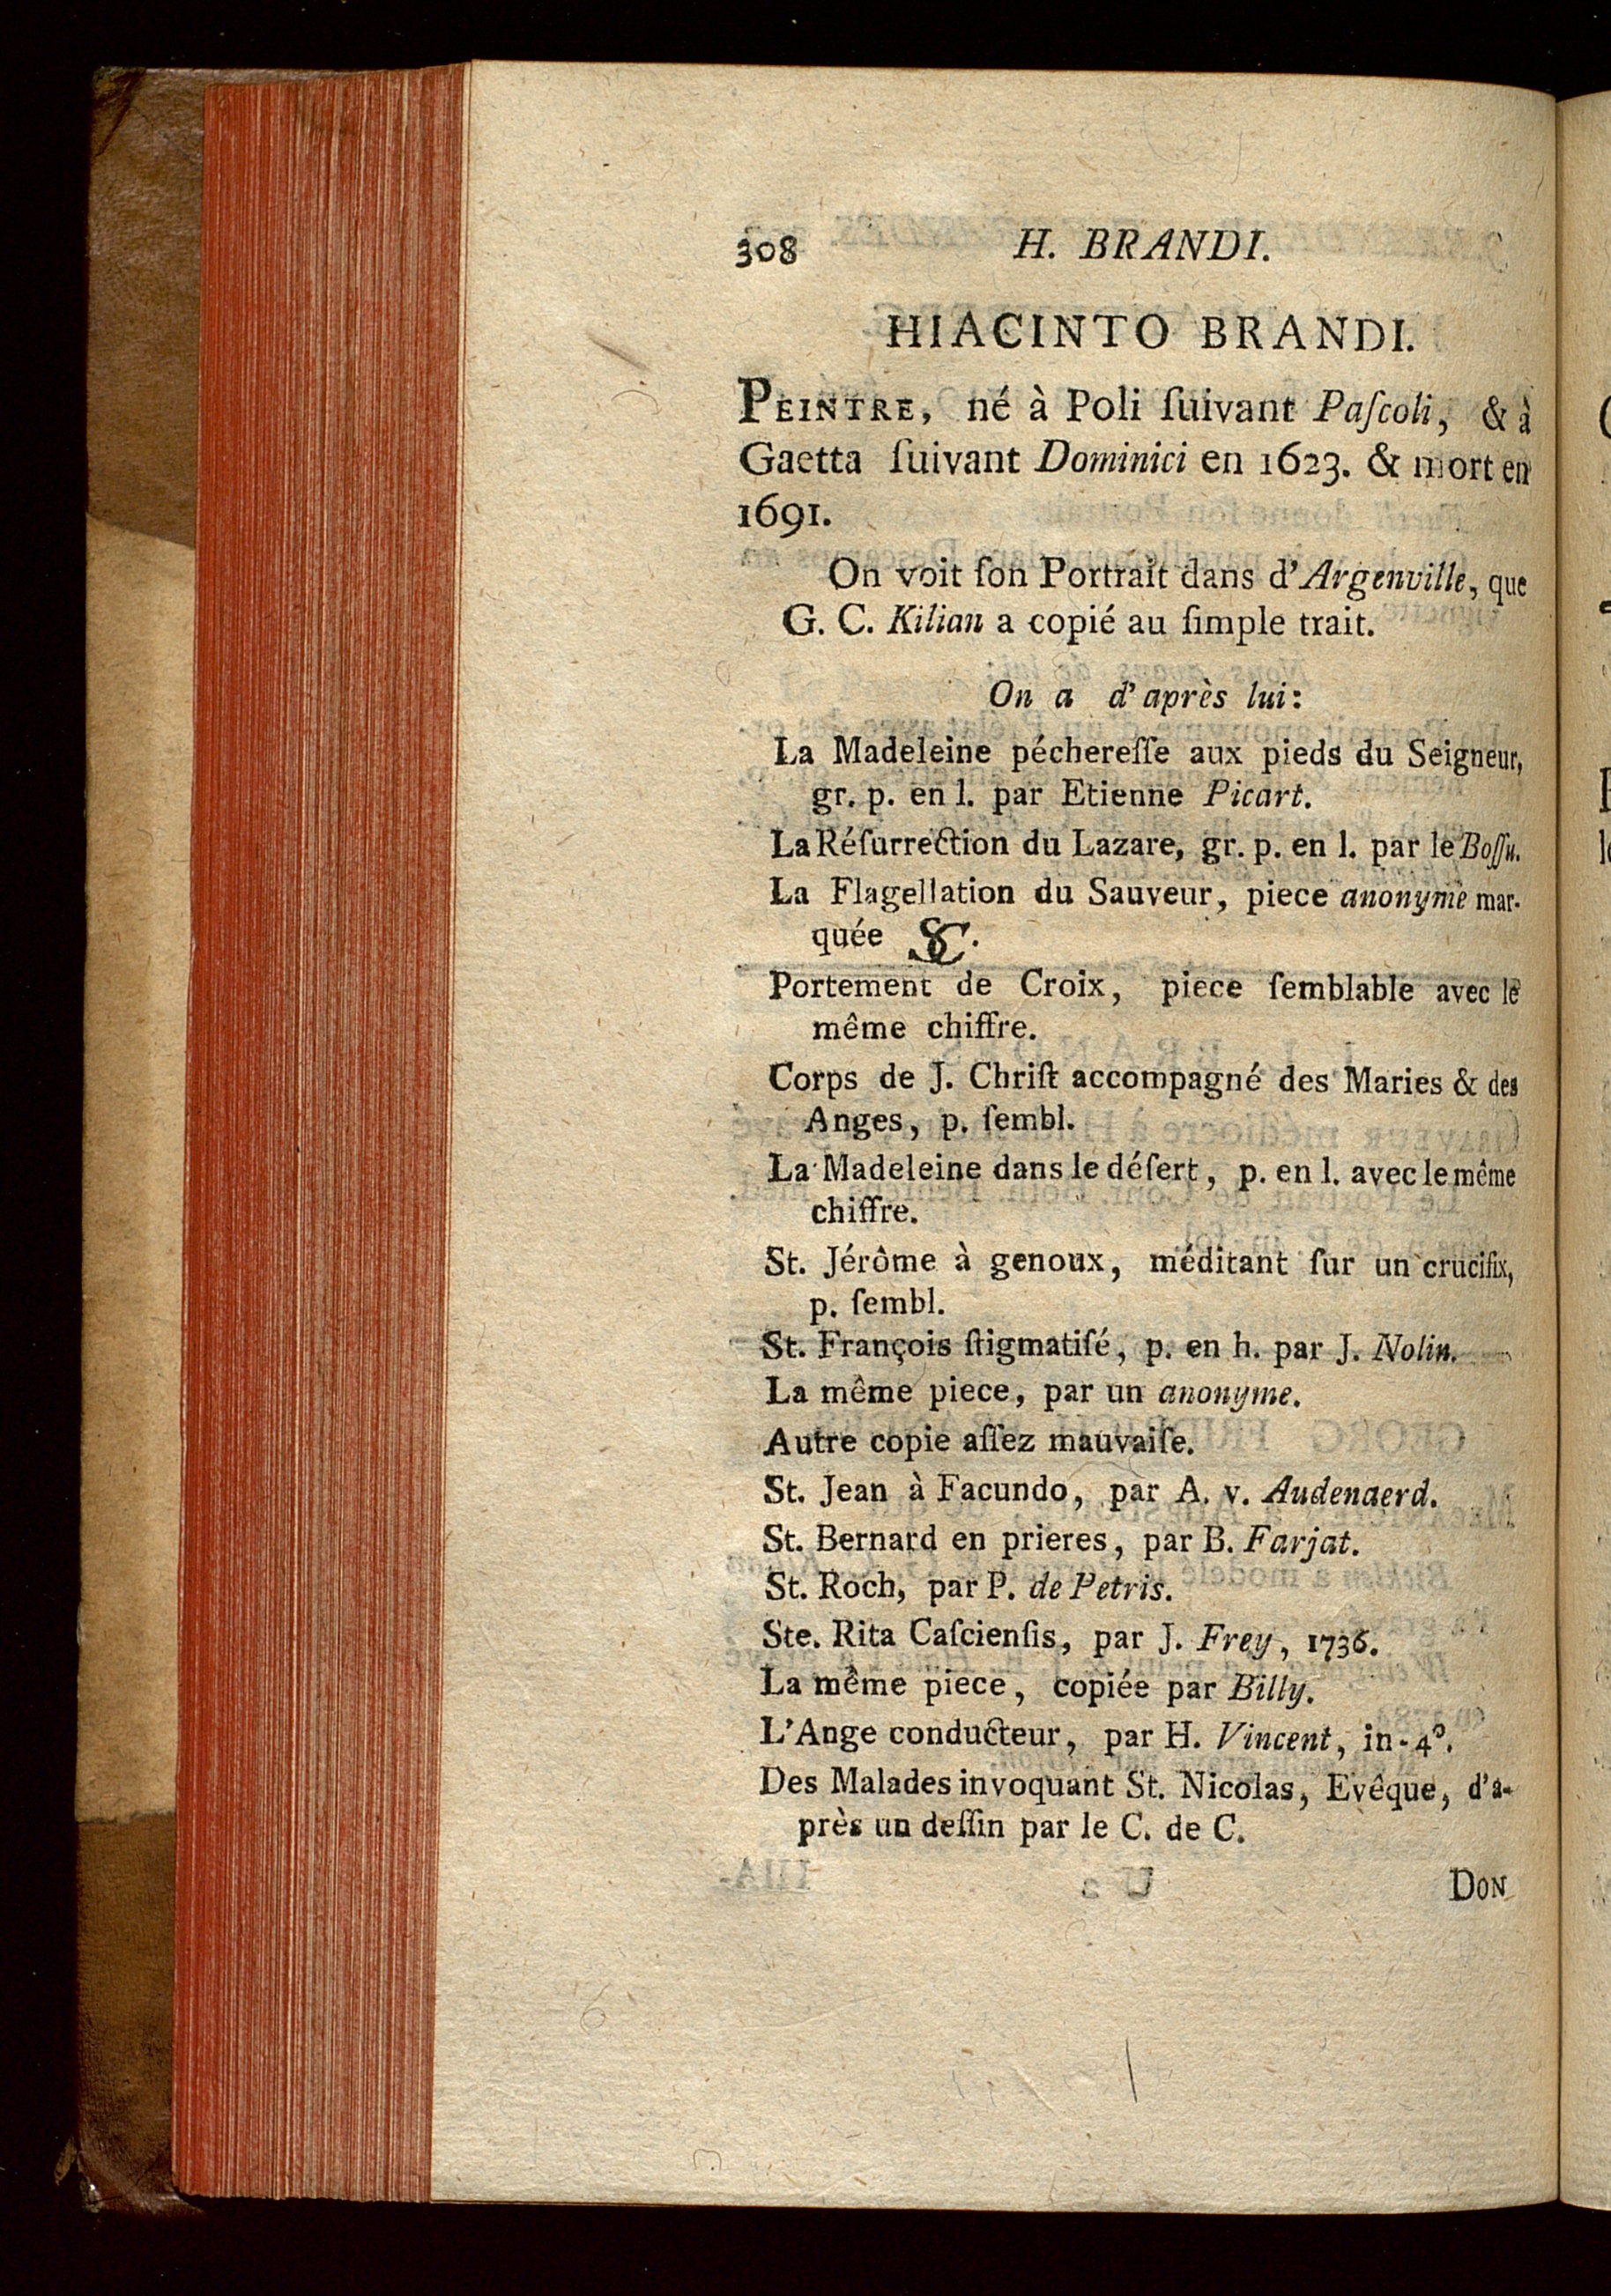 308 H. BRANDI.
HIACINTO BRANDI.
PEINTRE, né à Poli ſuivant Paſcoli, & à
Gaetta ſuivant Dominici en 1623. & mort en
1691.
On voit ſon Portrait dans d'Argenville, que
G. C. Kilian a copié au ſimple trait.
On a d'après lui:
La Madeleine péchereſſe aux pieds du Seigneur,
gr. p. en l. par Etienne Picart.
La Réſurrection du Lazare, gr. p. en l. par le Boſſu.
La Flagellation du Sauveur, piece anonyme mar-
quée SC.
Portement de Croix, piece ſemblable avec le
même chiffre.
Corps de J. Chriſt accompagné des Maries & des
Anges, p. ſembl.
La Madeleine dans le déſert, p. en l. avec le même
chiffre.
St. Jérôme à genoux, méditant ſur un crucifix,
p. ſembl.
St. François ſtigmatiſé, p. en h. par J. Nolin.
La même piece, par un anonyme.
Autre copie aſſez mauvaiſe.
St. Jean à Facundo, par A. v. Audenaerd.
St. Bernard en prieres, par B. Farjat.
St. Roch, par P. de Petris.
Ste. Rita Caſcienſis, par J. Frey, 1736.
La même piece, copiée par Billy.
L'Ange conducteur, par H. Vincent, in-4°.
Des Malades invoquant St. Nicolas, Evêque, d'a-
près un deſſin par le C. de C.
DON